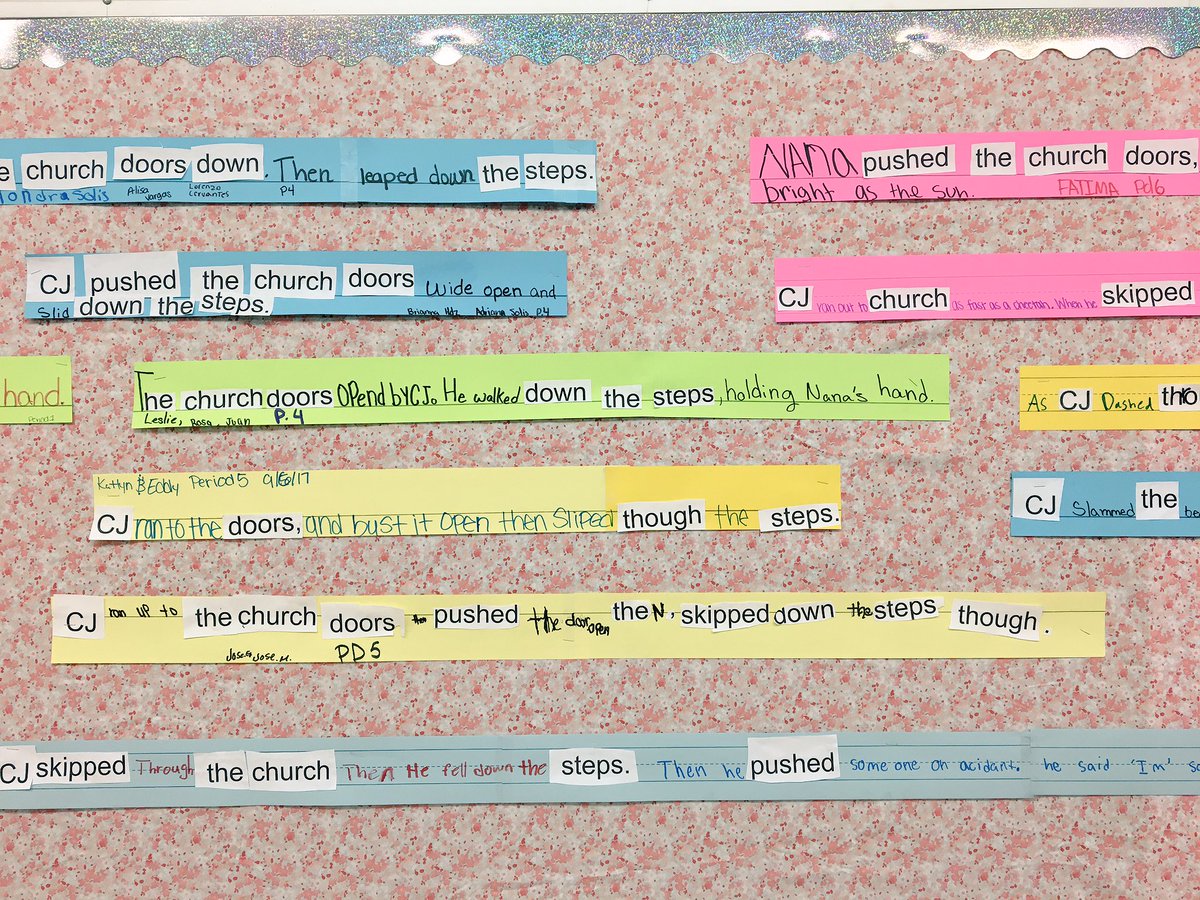 church doors down. Then leaped down the steps.
Alisa Vargas Lorenzo Cervantes P4
NANA pushed the church doors,
bright as the sun. FATIMA Pd6
CJ pushed the church doors wide open and
slid down the steps. Brianna Hdz Adriana Solis P.4
CJ ran out to church as fast as a cheetah. When he skipped
hand.
Period 2
The church doors OPend by CJ. He walked down the steps, holding Nana's hand.
Leslie, Rosa, Juan P.4
As CJ Dashed thro
Katlyn & Eddy Period 5
CJ ran to the doors, and bust it Open then Sliped though the steps.
CJ Slammed the be
CJ ran up to the church doors then pushed the doors open the N, skipped down the steps though.
Jose G Jose. M. PD 5
CJ skipped Through the church Then He fell down the steps. Then he pushed some one on acidant. he said 'I'm' so